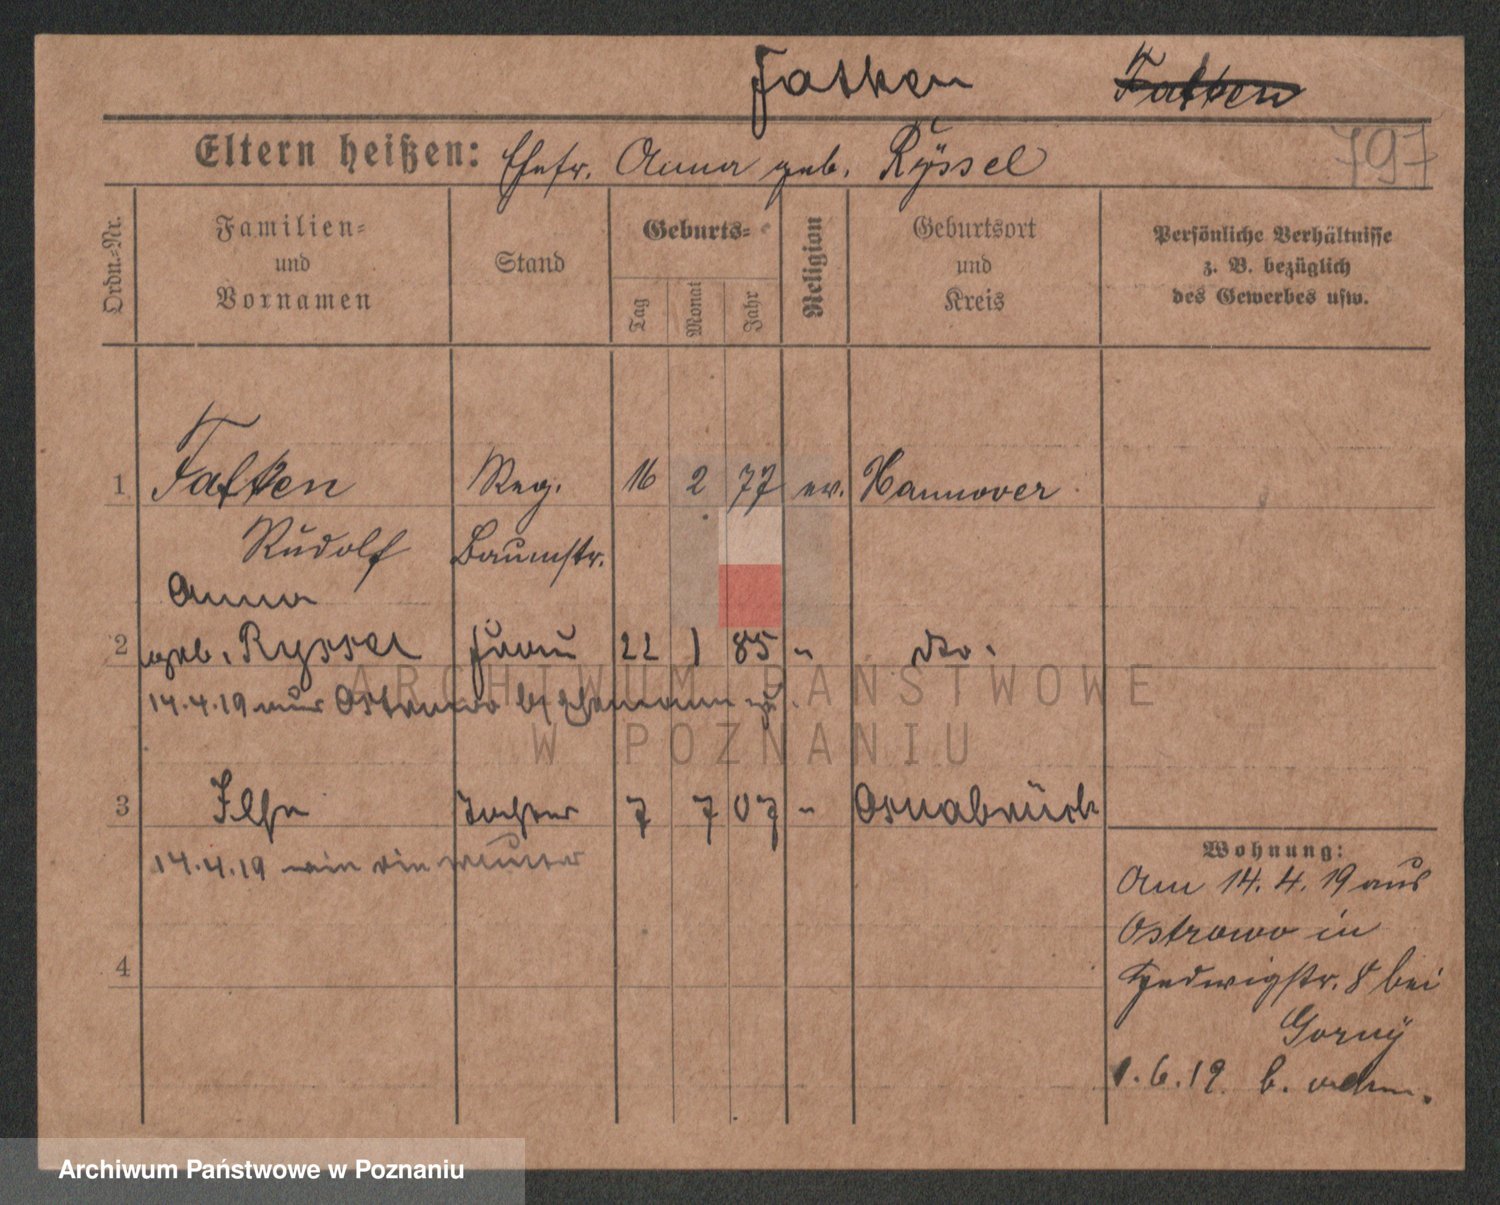 Fatken Fatken
Eltern heißen: Ehefr. Anna geb. Ryssel
797
Ordn.-Nr.
Familien-
und
Vornamen
Stand
Geburts-
Tag
Monat
Jahr
Religion
Geburtsort
und
Kreis
Persönliche Verhältnisse
z. B. bezüglich
des Gewerbes usw.
1 Fatken Reg. 16 2 77 ev. Hannover
Rudolf Baumstr.
Anna
2 geb. Ryssel Frau 22 1 85 " dto.
14.4.19 aus Ostrowo
ARCHIWUM PAŃSTWOWE
W POZNANIU
3 Ilse Tochter 7 7 07 " Osnabrück
14.4.19 wie die Mutter
4
Wohnung:
Am 14. 4. 19 aus
Ostrowo in
Hedwigstr. 8 bei
Gorny
1.6.19. b.
Archiwum Państwowe w Poznaniu